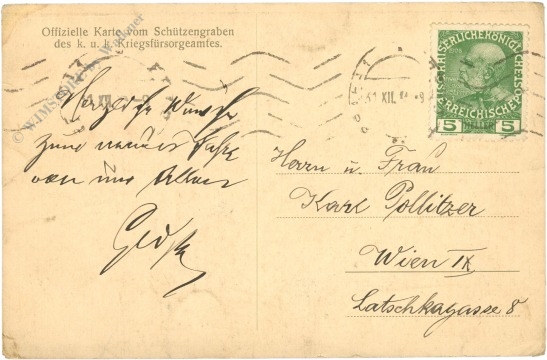 Offizielle Karte vom Schützengraben
des k. u. k. Kriegsfürsorgeamtes.
Herzliche Wünsche
zum neuen Jahre
von uns Allen
31 XII. 14
KAISERLICHE KÖNIGLICHE
ÖSTERREICHISCHE POST
5 5
Herrn u. Frau
Karl Pollitzer
Wien IX
Latschkagasse 8